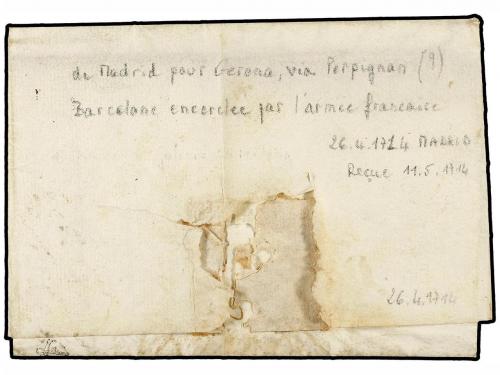 de Madrid pour Gerona, via Perpignan (9)
Barcelone encerclée par l'armée francaise
26.4.1714 MADRID
Reçue 11.5.1714
26.4.1714